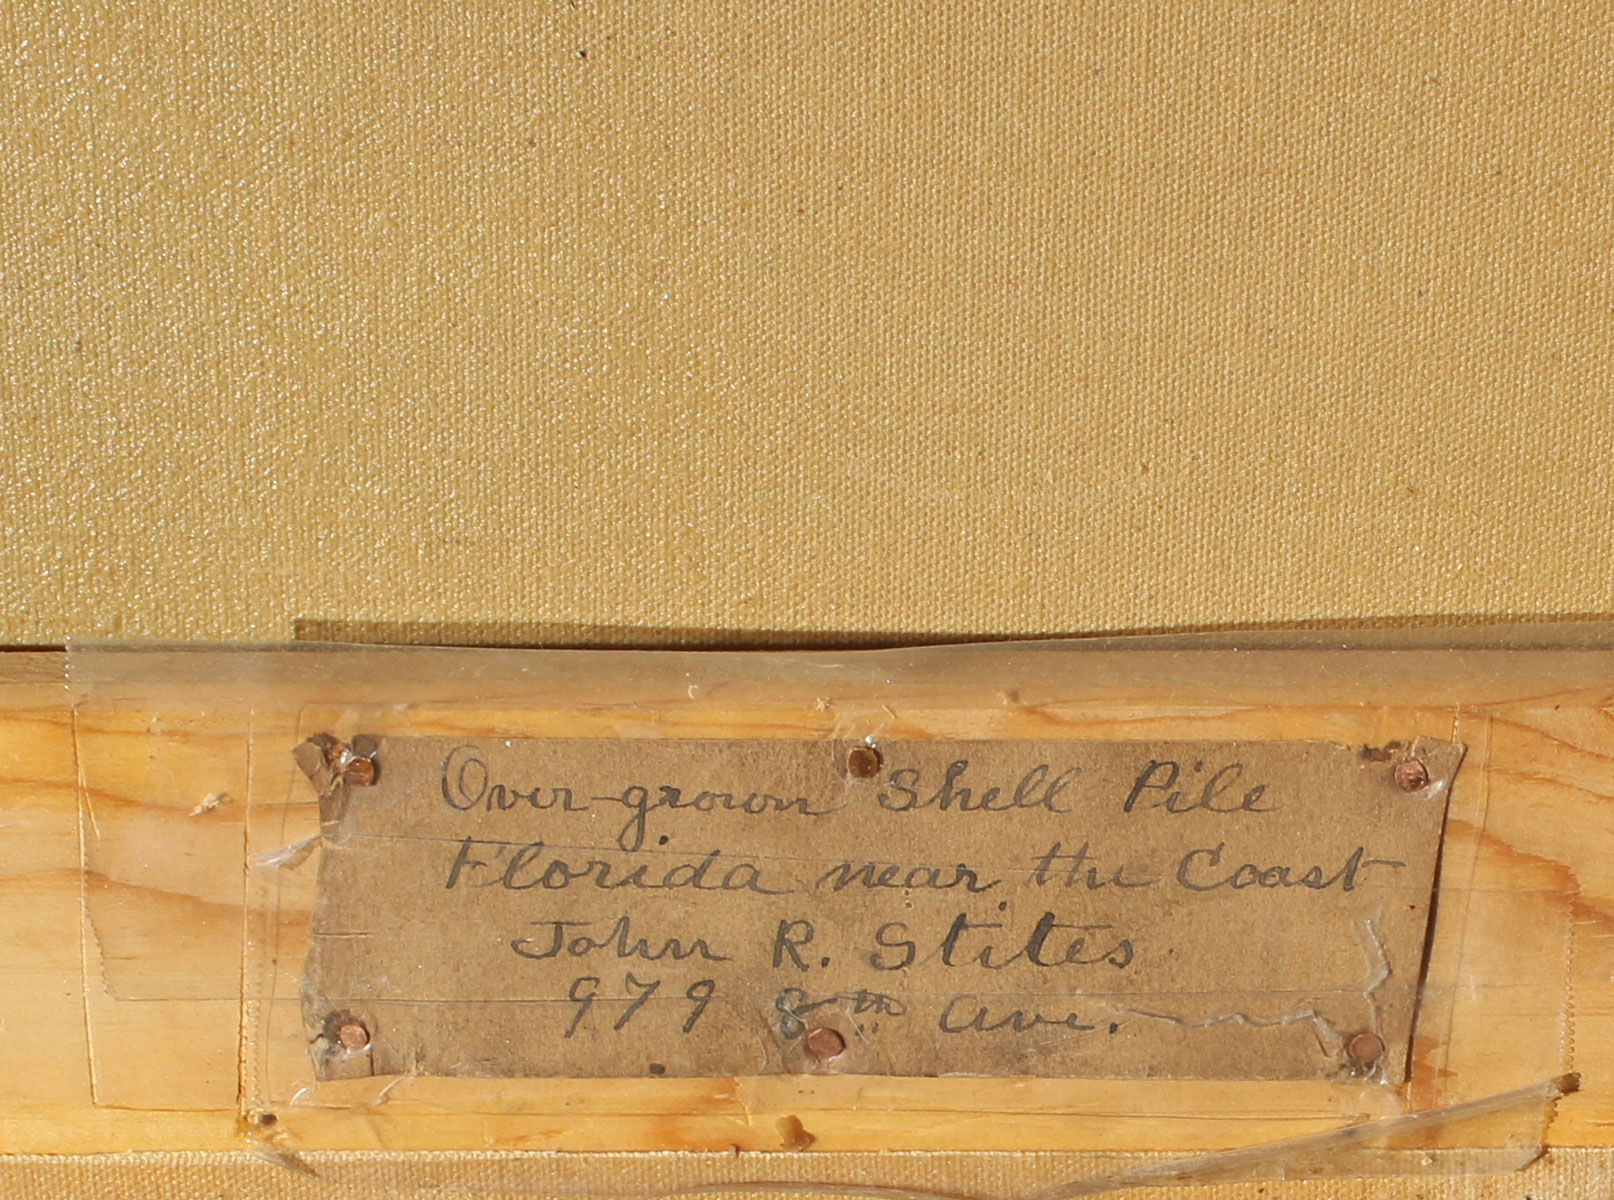 Over-grown Shell Pile
Florida near the Coast
John R. Stites.
979 8th Ave.